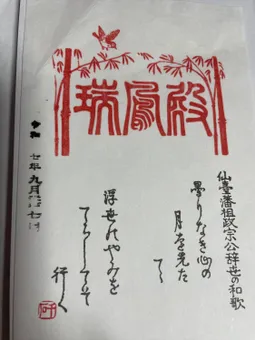 瑞鳳殿
仙臺藩祖政宗公辞世の和歌
曇りなき心の
月を先た
てゝ
浮世のやみを
てらしてそ
行く
令和
七年九月